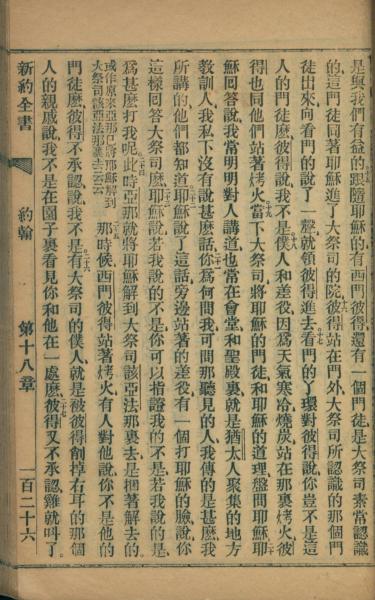 是與我們有益的跟隨耶穌的有西門彼得還有一個門徒是大祭司素常認識
的這門徒同著耶穌進了大祭司的院彼得站在門外大祭司所認識的那個門
徒出來向看門的說了一聲就領彼得進去看門的丫環對彼得說你豈不是這
人的門徒麽彼得說我不是僕人和差役因爲天氣寒冷燒炭站在那裏烤火彼
得也同他們站著烤火當下大祭司將耶穌的門徒和耶穌的道理盤問耶穌耶
穌回答說我當明明對人講道也常在會堂和聖殿裏就是猶太人聚集的地方
教訓人我私下沒有說甚麽話你爲何問我可問那聽見的人我傳的是甚麽我
所講的他們都知道耶穌說了這話旁邊站著的差役有一個打耶穌的臉說你
這樣回答大祭司麽耶穌說若我說的不是你可以指證我的不是若我說的是
爲甚麽打我呢此時亞那就將耶穌解到大祭司該亞法那裏去是捆著解去的
或作原來亞那已將耶穌解到大祭司該亞法那裏去云云
那時候西門彼得站著烤火有人對他說你不是他的
門徒麽彼得不承認說我不是有大祭司的僕人就是被彼得削掉右耳的那個
人的親戚說我不是在園子裏看見你和他在一處麽彼得又不承認雞就呌了
新約全書
約翰
第十八章
一百二十六